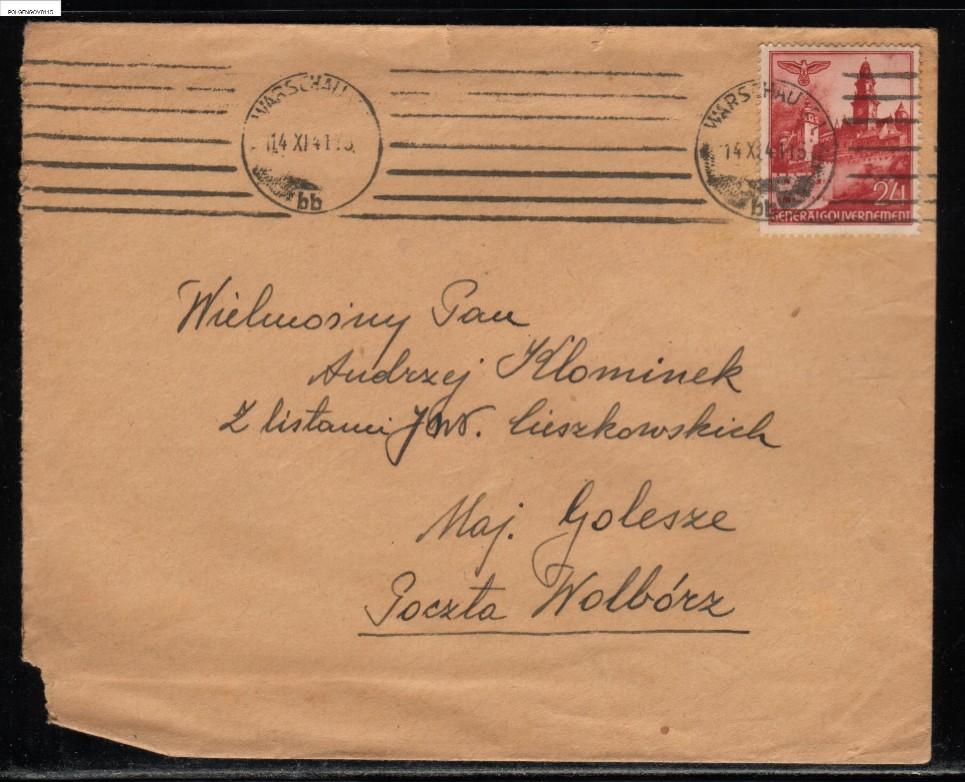 POLGENGOV0115
WARSCHAU
14 XI 41 15
bb
WARSCHAU
14 XI 41 15
bb
24
GENERALGOUVERNEMENT
Wielmożny Pan
Andrzej Kłominek
Z listami JWP. Cieszkowskich
Maj. Golesze
Poczta Wolbórz